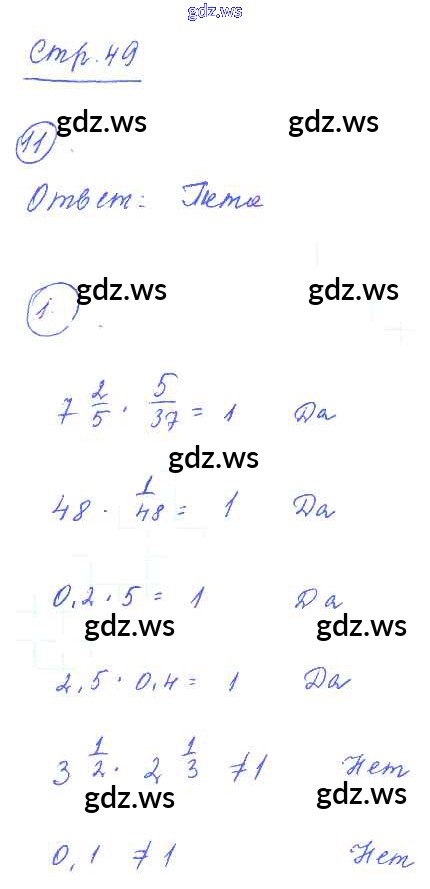 gdz.ws
Стр. 49
gdz.ws gdz.ws
11.
Ответ: Петя
gdz.ws gdz.ws
1.
7 2/5 · 5/37 = 1 Да
gdz.ws
48 · 1/48 = 1 Да
0,2 · 5 = 1 Да
gdz.ws gdz.ws
2,5 · 0,4 = 1 Да
3 1/2 · 2 1/3 ≠ 1 Нет
gdz.ws gdz.ws
0,1 ≠ 1 Нет